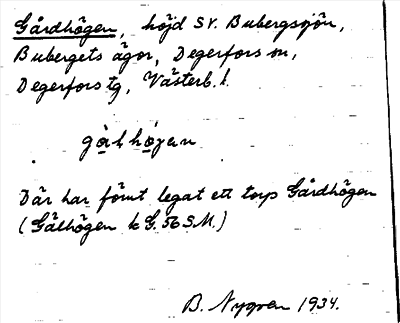 Gårdhögen, höjd SV. Bubergssjön,
Bubergets ägor, Degerfors sn,
Degerfors tg, Västerb. l.
gålhögen
Där har förut legat ett torp Gårdhögen
(Gålhögen k G. 56 S.M.)
B. Nygren 1934.